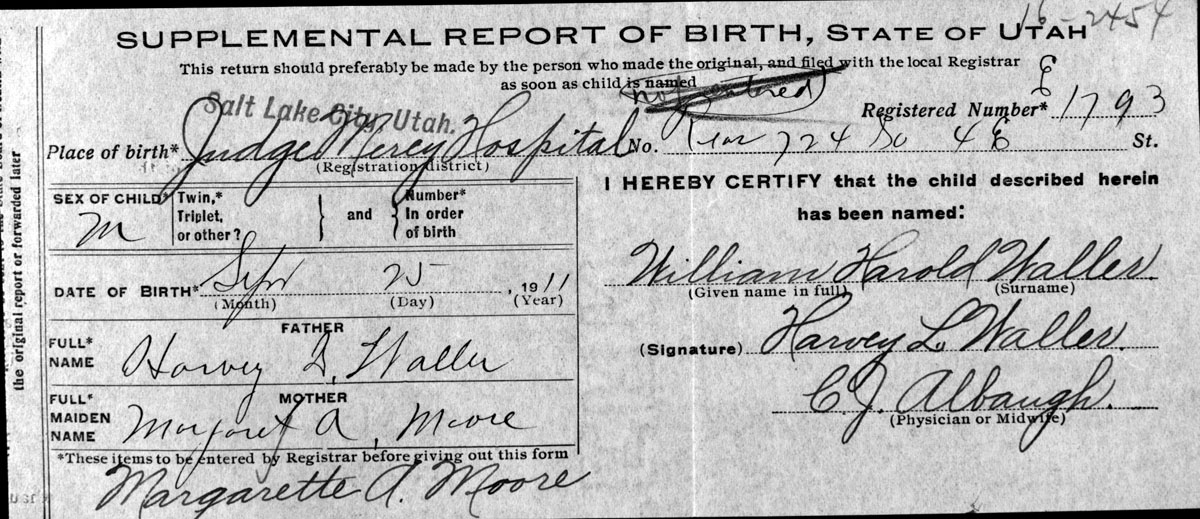 16-2454
SUPPLEMENTAL REPORT OF BIRTH, STATE OF UTAH
This return should preferably be made by the person who made the original, and filed with the local Registrar
as soon as child is named
Salt Lake City, Utah.
Registered Number* 1793
Place of birth* Judge Mercy Hospital No. 724 So 4 E St.
(Registration district)
SEX OF CHILD* M
Twin,* Triplet, or other? } and { Number* In order of birth
DATE OF BIRTH* Sept 25, 1911
(Month) (Day) (Year)
FATHER
FULL* NAME Harvey L, Waller
MOTHER
FULL* MAIDEN NAME Margaret A, Moore
*These items to be entered by Registrar before giving out this form
Margarette A. Moore
I HEREBY CERTIFY that the child described herein
has been named:
William Harold Waller.
(Given name in full) (Surname)
(Signature) Harvey L. Waller.
C. J. Albaugh.
(Physician or Midwife)
the original report or forwarded later